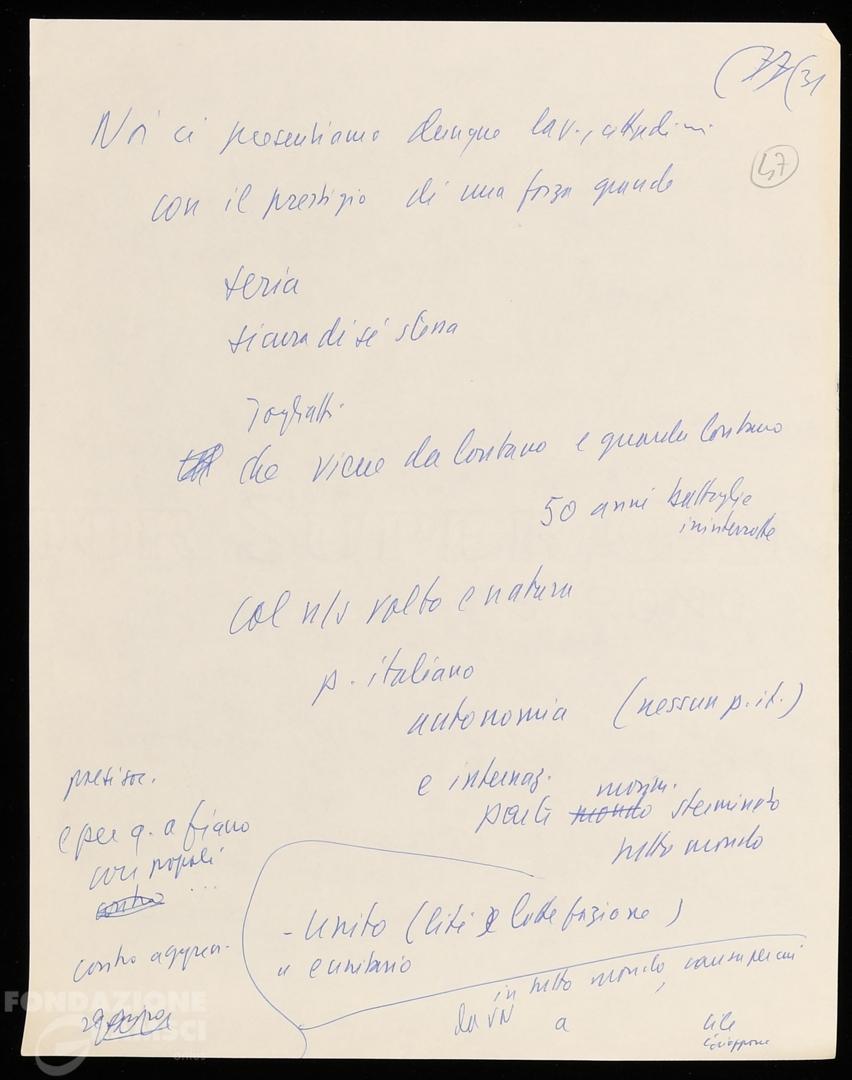 77 (31
47
Noi ci presentiamo dunque lav., cittadini
con il prestigio di una forza grande
seria
sicura di sé stessa
Togliatti
che viene da lontano e guarda lontano
50 anni battaglie
ininterrotte
col n/s volto e natura
p. italiano
autonomia (nessun p. it.)
e internaz.
parte mondo movim. sterminato
tutto mondo
paesi soc.
e per q. a fianco
con popoli
contro ...
contro aggress.
- Unito (liti e lotte fazione)
" e unitario
in tutto mondo,
da VN a Cile
Giappone
FONDAZIONE
GRAMSCI